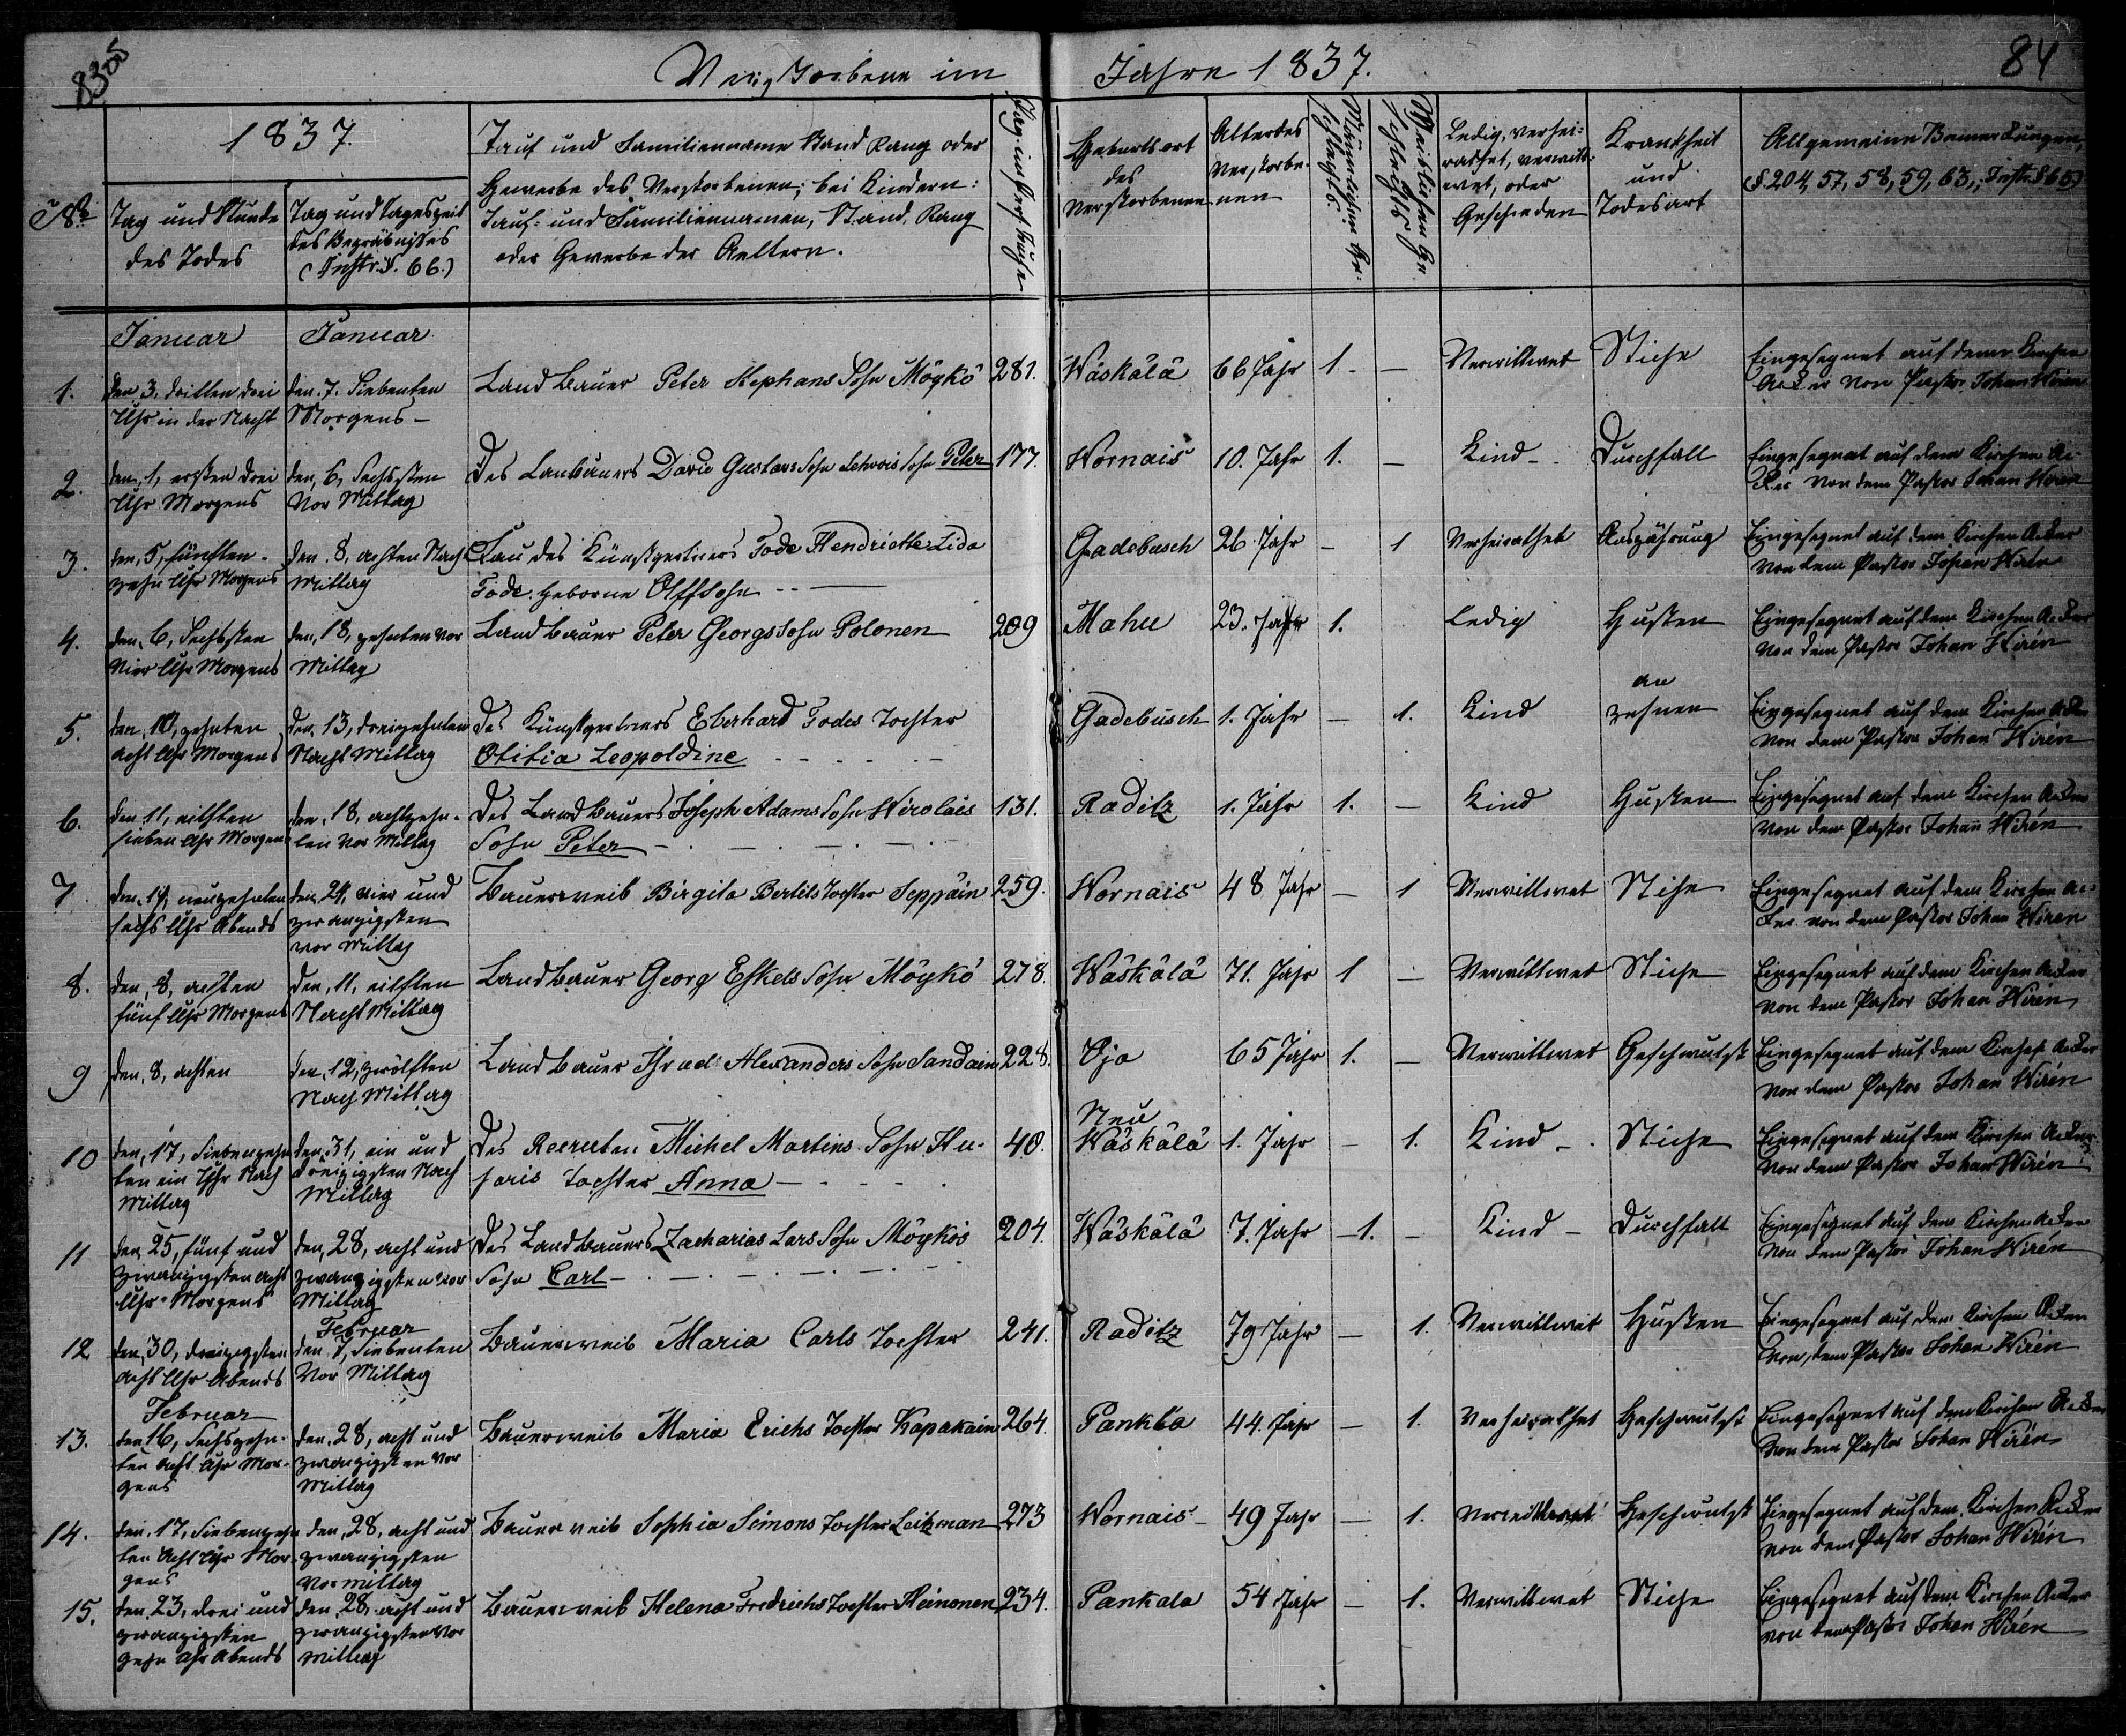 83
84
Verstorbene im Jahre 1837.
1837.
Tag und Stunde
des Todes
Tag und Tageszeit
des Begräbnisses
(Instr. §. 66.)
Tauf und Familienname Stand Rang oder
Gewerbe des Verstorbenen; bei Kindern:
Tauf- und Familiennamen, Stand, Rang
oder Gewerbe der Aeltern.
Geburtsort
des
Verstorbenen
Alter des
Verstorbe-
nen
Männlichen Ge-
schlechts
Weiblichen Ge-
schlechts
Ledig, verhei-
rathet, verwitt-
wet, oder
Geschieden
Krankheit
und
Todesart
Allgemeine Bemerkungen,
(§. 204, 57, 58, 59, 63, Instr. § 65)
Januar
Januar
1.
den, 3, dritten drei
Uhr in der Nacht
den, 7, Siebenten
Morgens –
Landbauer Peter Stephans Sohn Möykö
281.
Wäskälä
66 Jahr
1.
–
Verwittwet
Stiche
Eingesegnet auf dem Kirchen
Acker von Pastor Johan Wirén
2.
den, 1, ersten drei
Uhr Morgens
den, 6, Sechsten
Vor Mittag
Des Lanbauers David Gustavs Sohn Sohn Peter
177.
Wornais
10. Jahr
1.
–
Kind –
Durchfall
Eingesegnet auf dem Kirchen Ac-
ker von dem Pastor Johan Wirén
3.
den, 5, fünften
zehn Uhr Morgens
den, 8, achten Nach
Mittag
Frau des Künstgertners Tode Hendriette Lida
Tode. geborne
Gadebusch
26. Jahr
–
1
Verheirathet
Auszährung
Eingesegnet auf dem Kirchen Acker
von dem Pastor Johan Wirén
4.
den, 6, Sechsten
Vier Uhr Morgens
den, 18, vor
Mittag
Landbauer Peter Georgs Sohn Polonen
209
Mahu
23. Jahr
1.
Ledig
Husten
Eingesegnet auf dem Kirchen Acker
von dem Pastor Johan Wirén
5.
den, 10, zehnten
acht Uhr Morgens
den, 13, dreizehnten
Nach Mittag
Des Künstgertners Eberhard Todes Tochter
Otitia Leopoldine
Gadebusch
1. Jahr
–
1.
Kind
an
zehnen
Eingesegnet auf dem Kirchen Acker
von dem Pastor Johan Wirén
6.
den 11, eilften
sieben Uhr Morgens
den, 18, achtzehn-
ten Vor Mittag
Des Landbauers Joseph Adams Sohn Wirolais
Sohn Peter
131.
Raditz
1. Jahr
1.
–
Kind
Husten
Eingesegnet auf dem Kirchen Acker
von dem Pastor Johan Wirén
7
den, 19, neunzehnten
sechs Uhr Abends
den, 24, vier und
zwanzigsten
vor Mittag
Bauerweib Birgita Bertils Tochter Seppäin
259.
Wornais
48 Jahr
–
1
Verwittwet
Stiche
Eingesegnet auf dem Kirchen Ac-
ker von dem Pastor Johan Wirén
8.
den, 8, achten
fünf Uhr Morgens
den, 11, eilften
Nach Mittag
Landbauer Georg Eskels Sohn Möykö
278.
Wäskälä
71. Jahr
1
–
Verwittwet
Stiche
Eingesegnet auf dem Kirchen Acker
von dem Pastor Johan Wirén
9
den, 8, achten
den, 12, zwölften
Nach Mittag
Landbauer Alexanders Sohn Sandain
228.
Oja
65 Jahr
1.
–
Verwittwet
Geschwulst
Eingesegnet auf dem Kirchen Acker
von dem Pastor Johan Wirén
10
den, 17, Siebenzehn
ten ein Uhr Nach
Mittag
den, 31, ein und
dreizigsten Nach
Mittag
Des Recruten Michel Martins Sohn Hu-
saris Tochter Anna –
40.
Neu
Wäskälä
1. Jahr
–
1.
Kind –
Stiche
Eingesegnet auf dem Kirchen Acker
von dem Pastor Johan Wirén
11
den 25, fünf und
zwanzigsten acht
Uhr Morgens
den, 28, acht und
zwanzigsten vor
Mittag
Des Landbauers Zacharias Lars Sohn Möykös
Sohn Carl –
204.
Wäskälä
7. Jahr
1.
–
Kind –
Durchfall
Eingesegnet auf dem Kirchen Acker
von dem Pastor Johan Wirén
12
den, 30, dreizigsten
acht Uhr Abends
Februar
den 7, Siebenten
Vor Mittag
Bauerweib Maria Carls Tochter
241.
Raditz
79 Jahr
–
1.
Verwittwet
Husten
Eingesegnet auf dem Kirchen Acker
von, dem Pastor Johan Wirén
Februar
13.
den 16, Sechszehn-
ten acht Uhr Mor-
gens
den, 28, acht und
zwanzigsten vor
Mittag
Bauerweib Maria Erichs Tochter Kapakain
264.
Pankla
44. Jahr
–
1.
Verheirathet
Geschwulst
Eingesegnet auf dem Kirchen Acker
von dem Pastor Johan Wirén
14.
den, 17, Siebenzehn
ten acht Uhr Mor-
gens
den, 28, acht und
zwanzigsten
Vormittag
Bauerweib Sophia Simons Tochter Leitzman
273
Wornais
49 Jahr
–
1.
Verwittwet
Geschwulst
Eingesegnet auf dem Kirchen Acker
von dem Pastor Johan Wirén
15.
den, 23, drei und
zwanzigsten
zehn Uhr Abends
den, 28, acht und
zwanzigsten vor
Mittag
Bauerweib Helena Fredrichs Tochter Heinonen
234.
Pankala
54 Jahr
–
1.
Verwittwet
Stiche
Eingesegnet auf dem Kirchen Acker
von dem Pastor Johan Wirén